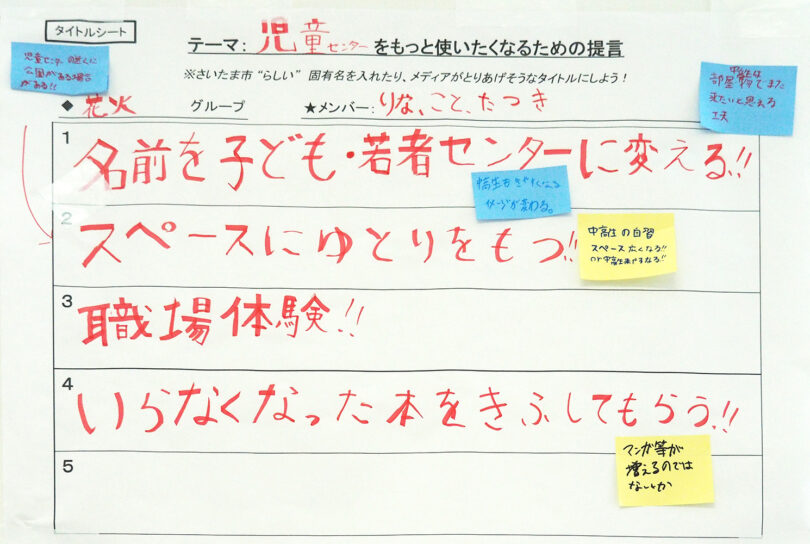 タイトルシート
テーマ: 児童センターをもっと使いたくなるための提言
※さいたま市“らしい”固有名を入れたり、メディアがとりあげそうなタイトルにしよう！
児童センターの近くに
公園がある場合
がある!!
中高生は
部屋 でまた
来たいと思える
工夫
◆ 花火 グループ ★メンバー: りな、こと、たつき
1 名前を子ども・若者センターに変える!!
イメージが変わる。
2 スペースにゆとりをもつ!!
中高生の自習
スペース広くなる!!
3 職場体験!!
4 いらなくなった本をきふしてもらう!!
マンガ等が
増えるのでは
ないか
5